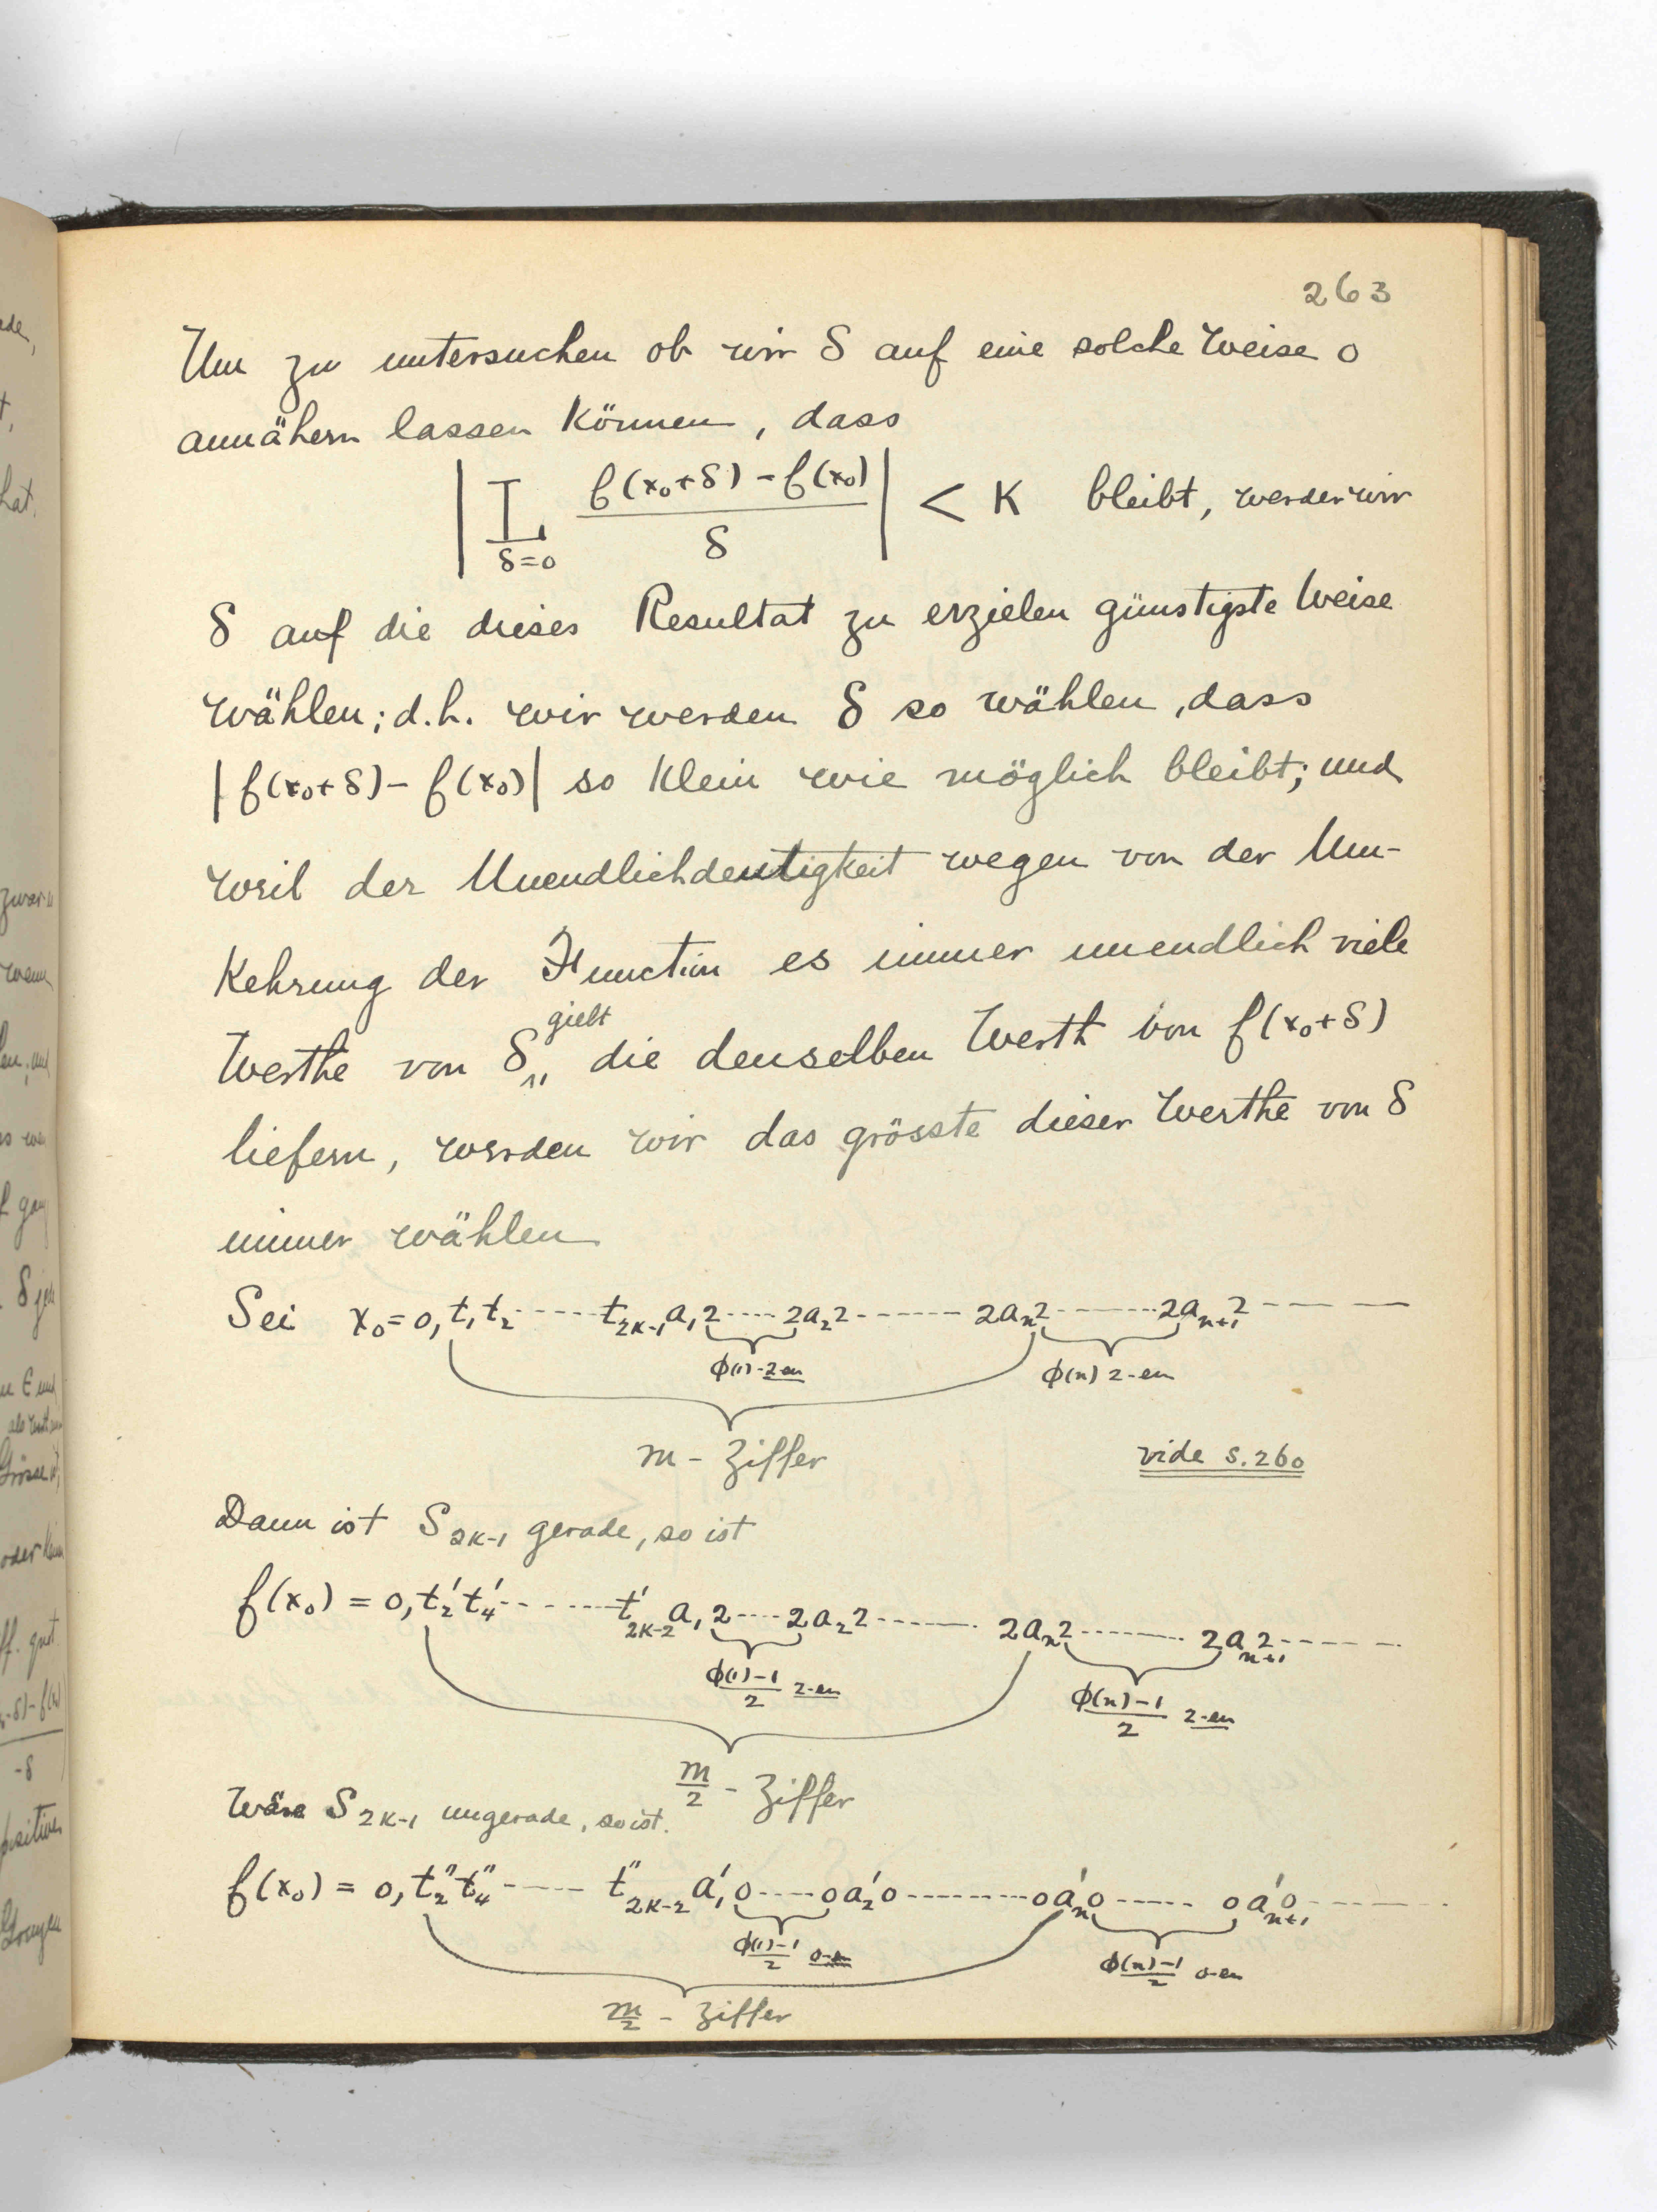 263
Um zu untersuchen ob wir δ auf eine solche Weise 0
annähern lassen können, dass
| L_{δ=0} (f(x₀+δ) - f(x₀))/δ | < K bleibt, werden wir
δ auf die dieses Resultat zu erzielen günstigste Weise
wählen; d.h. wir werden δ so wählen, dass
|f(x₀+δ) - f(x₀)| so klein wie möglich bleibt; und
weil der Unendlichdeutigkeit wegen von der Um-
kehrung der Function es immer unendlich viele
giebt
Werthe von δ„ die denselben Werth von f(x₀+δ)
liefern, werden wir das grösste dieser Werthe von δ
immer wählen
Sei x₀ = 0, t₁ t₂ ----- t_{2K-1} a₁ 2 ---- 2 a₂ 2 ------ 2 a_n 2 ------ 2 a_{n+1} 2 --- —
φ(1)-2-en φ(n) 2-en
m - Ziffer vide S. 260
Dann ist S_{2K-1} gerade, so ist
f(x₀) = 0, t'₂ t'₄ ------ t'_{2K-2} a₁ 2 ---- 2 a₂ 2 ------ 2 a_n 2 ------ 2 a_{n+1} 2 ------
(φ(1)-1)/2 2-en (φ(n)-1)/2 2-en
m/2 - Ziffer
Wäre S_{2K-1} ungerade, so ist.
f(x₀) = 0, t''₂ t''₄ ----- t''_{2K-2} a'₁ 0 ---- 0 a'₂ 0 -------- 0 a'_n 0 ------ 0 a'_{n+1} 0 ------
(φ(1)-1)/2 0-en (φ(n)-1)/2 0-en
m/2 - Ziffer